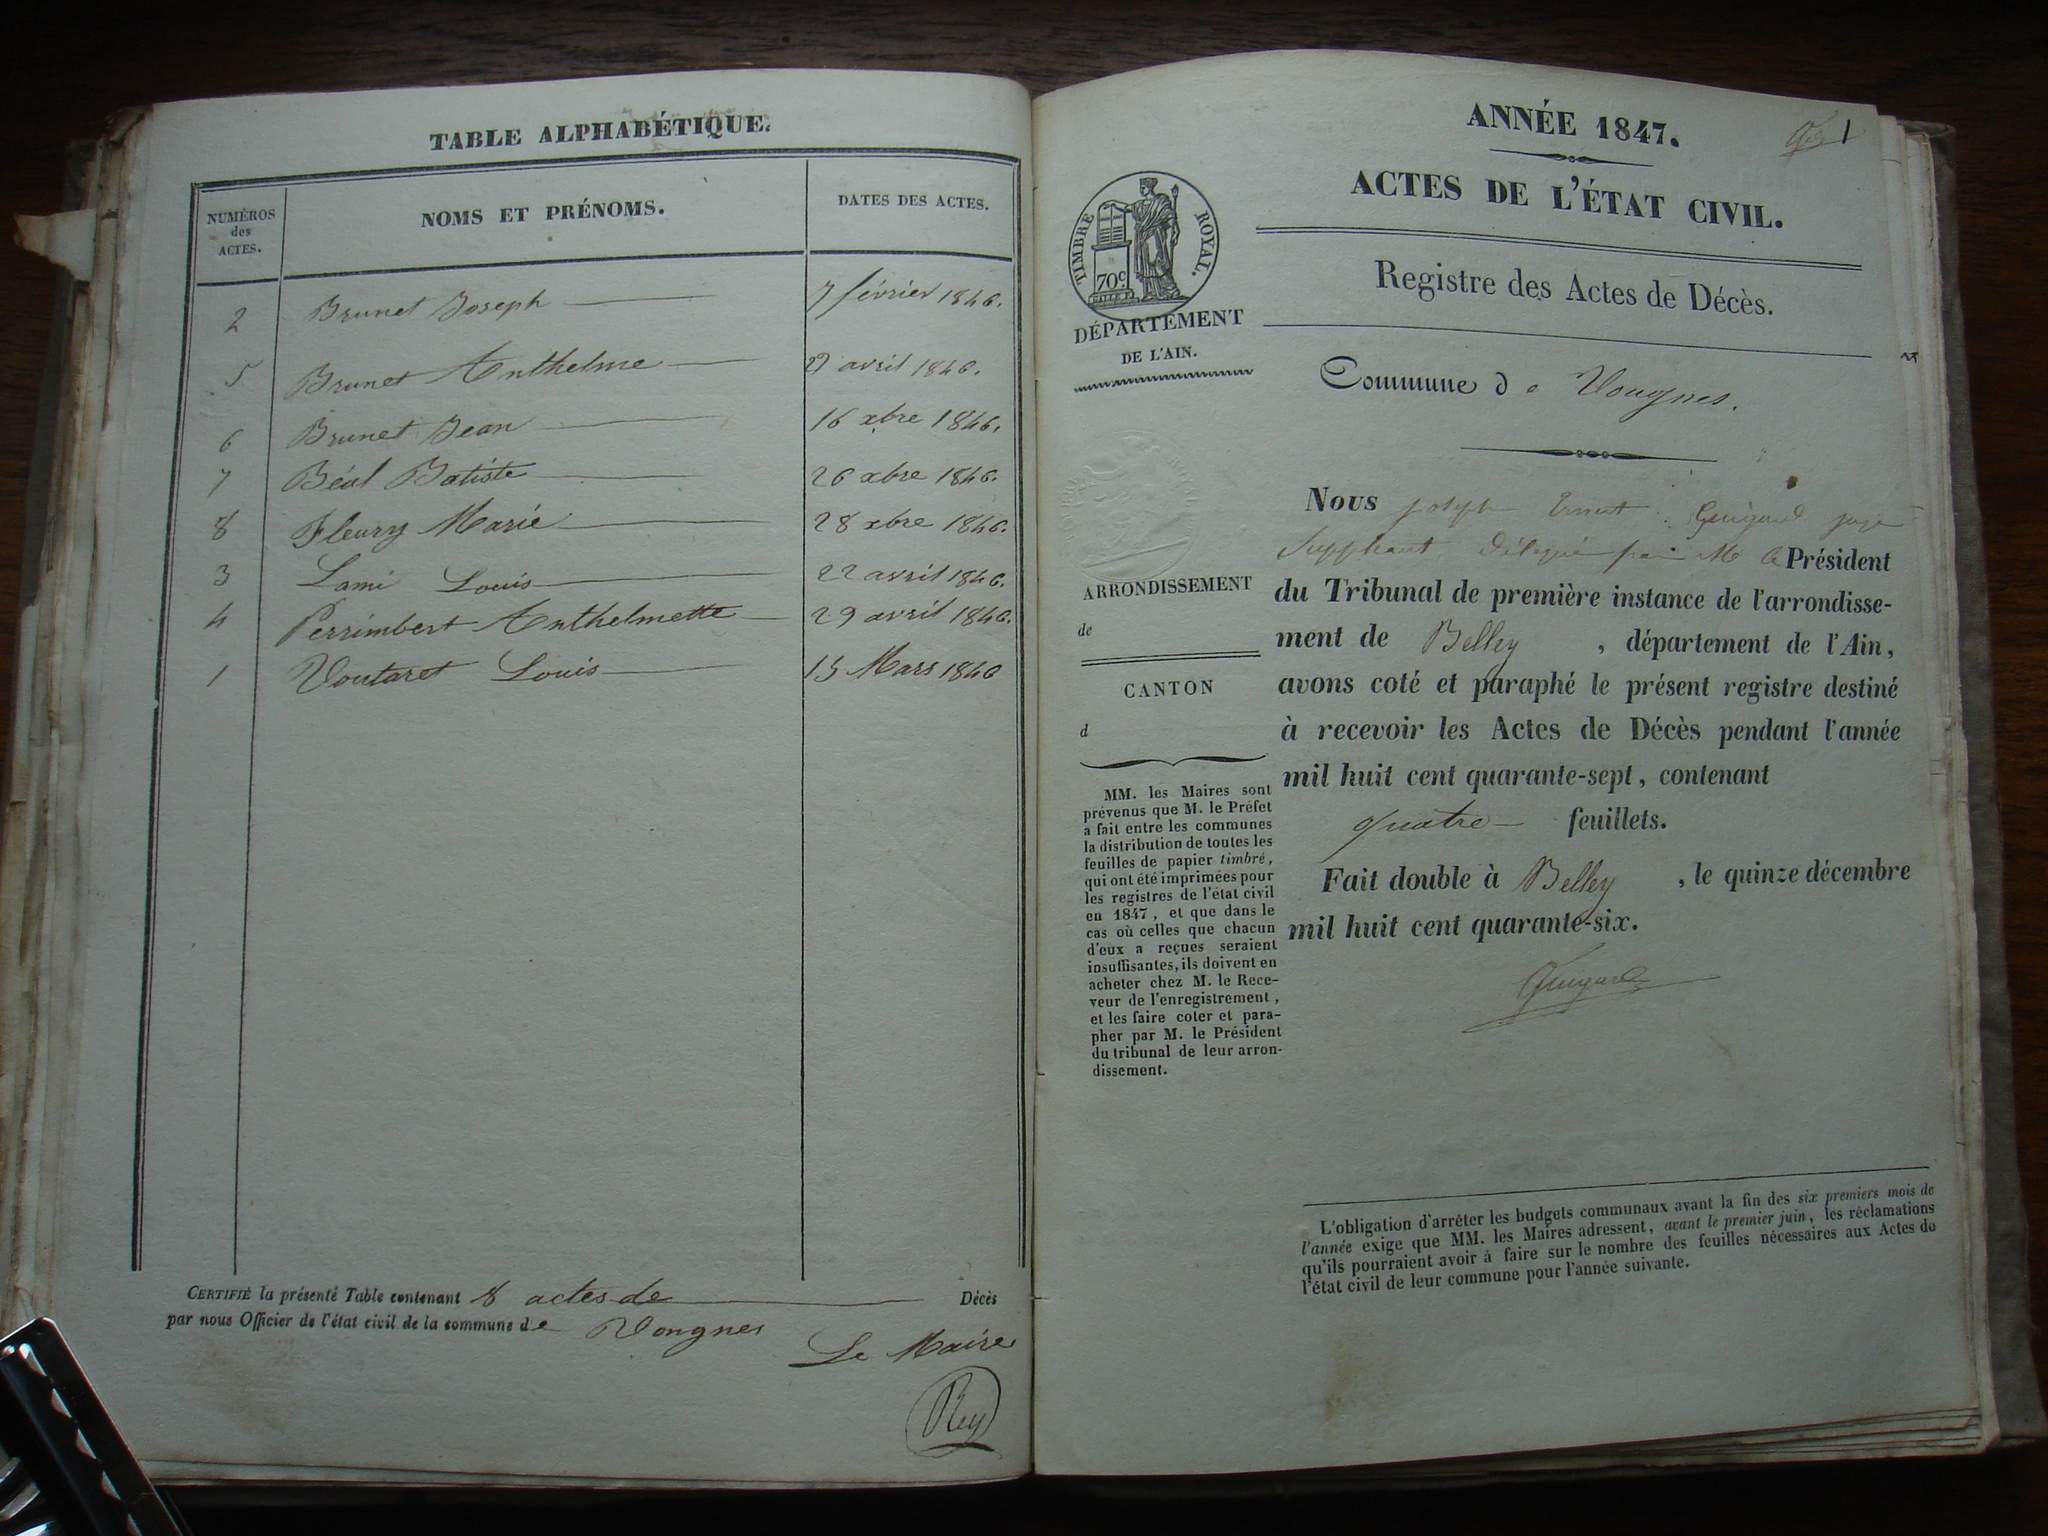 TABLE ALPHABÉTIQUE.
NUMÉROS des ACTES.
NOMS ET PRÉNOMS.
DATES DES ACTES.
2 Brunet Joseph 7 février 1846.
5 Brunet Anthelme avril 1846.
6 Brunet Jean 16 xbre 1846.
7 Béal Batiste 26 xbre 1846.
8 Fleury Marie 28 xbre 1846.
3 Lami Louis 22 avril 1846.
4 Perrimbert Anthelmette 29 avril 1846.
1 Voutaret Louis 15 Mars 1846
CERTIFIÉ la présente Table contenant 8 actes de Décès
par nous Officier de l'état civil de la commune de Vongnes
Le Maire
Rey
1
ANNÉE 1847.
ACTES DE L'ÉTAT CIVIL.
TIMBRE ROYAL.
70c
Registre des Actes de Décès.
DÉPARTEMENT
DE L'AIN.
Commune de Vongnes.
Nous Joseph Ernest Guigard juge
Suppléant délégué par M le Président
du Tribunal de première instance de l'arrondisse-
ment de Belley, département de l'Ain,
avons coté et paraphé le présent registre destiné
à recevoir les Actes de Décès pendant l'année
mil huit cent quarante-sept, contenant
quatre feuillets.
Fait double à Belley, le quinze décembre
mil huit cent quarante-six.
Guigard
ARRONDISSEMENT
de
CANTON
d
MM. les Maires sont
prévenus que M. le Préfet
a fait entre les communes
la distribution de toutes les
feuilles de papier timbré,
qui ont été imprimées pour
les registres de l'état civil
en 1847, et que dans le
cas où celles que chacun
d'eux a reçues seraient
insuffisantes, ils doivent en
acheter chez M. le Rece-
veur de l'enregistrement,
et les faire coter et para-
pher par M. le Président
du tribunal de leur arron-
dissement.
L'obligation d'arrêter les budgets communaux avant la fin des six premiers mois de
l'année exige que MM. les Maires adressent, avant le premier juin, les réclamations
qu'ils pourraient avoir à faire sur le nombre des feuilles nécessaires aux Actes de
l'état civil de leur commune pour l'année suivante.